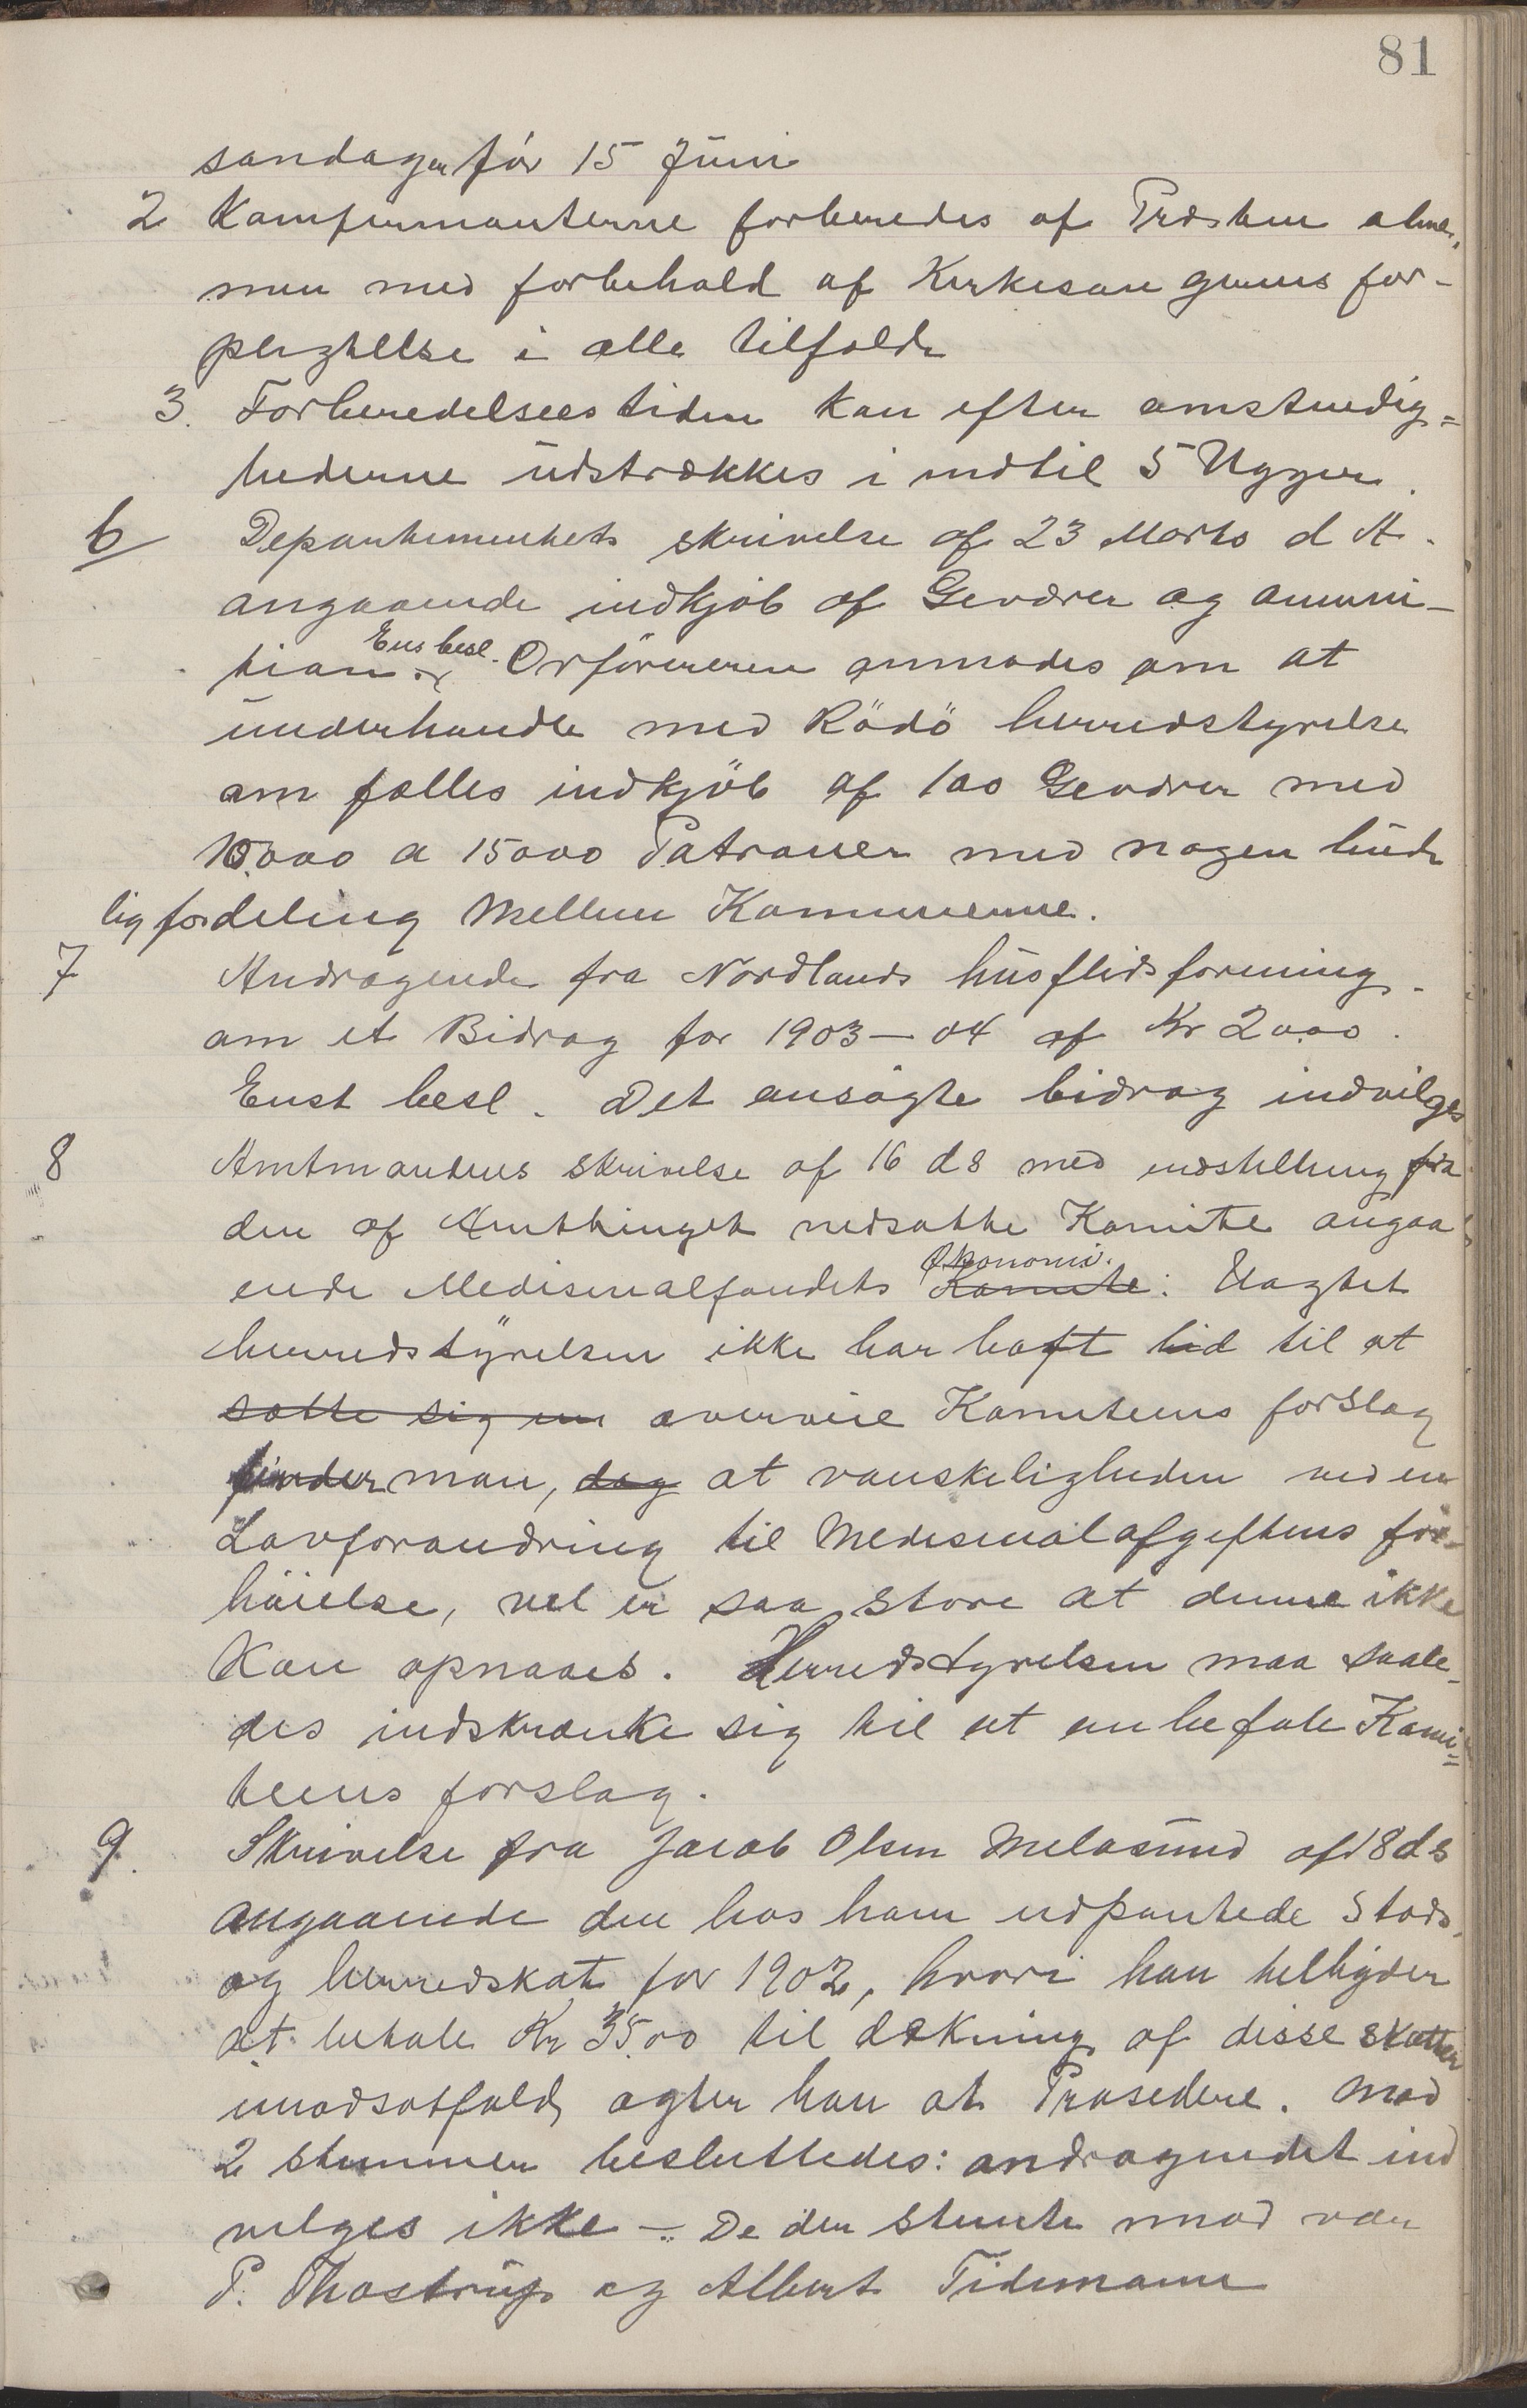 81
søndager før 15 Juni
2 Konfirmanterne forberedes af Præsten alene,
men med forbehold af Kirkesangerens for-
pligtelse i alle tilfælde
3. Forberedelsees tiden kan efter omstændig=
hederne udstrækkes i indtil 5 Ugger.
6 Departementets skrivelse af 23 Marts d A.
angaaende indkjøb af Geværer og ammuni-
tion. Ens besl. Orføreren anmodes om at
underhandle med Rödö herredstyrelse
om fælles indkjøb af 100 Geværer med
10.000 a 15000 Patroner med nogenlunde
lig fordeling Mellem Kommunerne.
7 Andragende fra Nordlands husflidsforening.
om et Bidrag for 1903-04 af Kr 20.00.
Enst besl. Det ansøgte bidrag indvilges
8 Amtmandens skrivelse af 16 ds med indstilling fra
den af Amtthinget nedsatte Komite angaa
ende Medisinalfondets Komite Økonomi. : Uagtet
herredstyrelsen ikke har haft tid til at
sætte sig ind overveie Komiteens forslag
finder man, dog at vanskeligheden ved en
Lovforandring til Medisinalafgiftens for-
høielse, vel er saa store at denne ikke
Kan opnaaes. Herredstyrelsen maa saale-
des indskrænke sig til at anbefale Komi=
teens forslag.
9. Skrivelse fra Jacob Olsen Meløsund af 18 ds
angaaende den hos ham udpantede Stads,
og herredskat for 1902, hvori han tilbyder
at betale Kr 35.00 til dækning af disse skatter
imodsatfald agter han at Prosedere. Mod
2 stemmer besluttedes: andragendet ind
vilges ikke - De der stemte mod var
P. Thostrup og Albert Tidemann